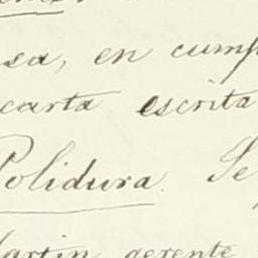 sea, en cump
carta escrita
Polidura. Se
Martin, gerente